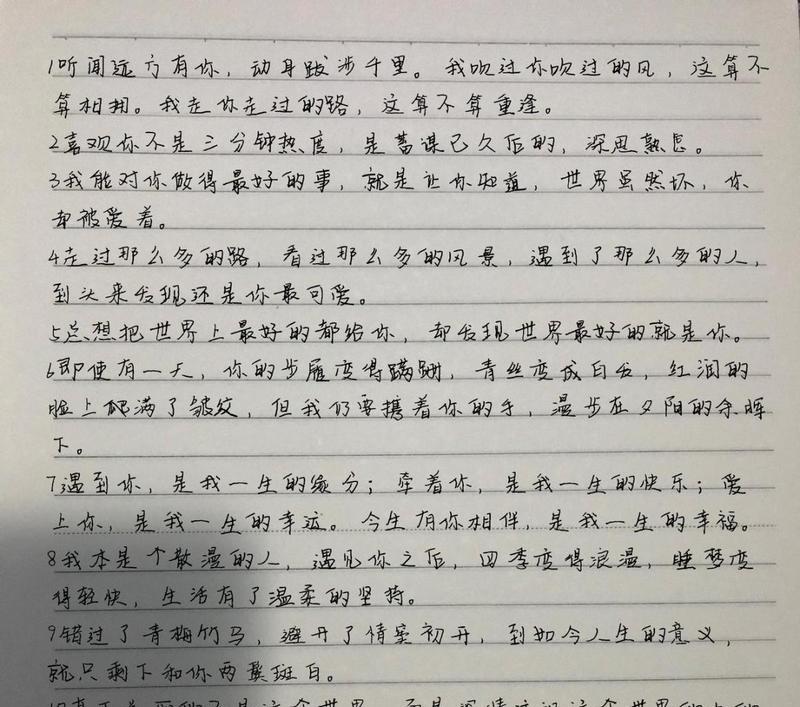 1听闻远方有你，动身跋涉千里。我吹过你吹过的风，这算不
算相拥。我走你走过的路，这算不算重逢。
2喜欢你不是三分钟热度，是蓄谋已久后的，深思熟虑。
3我能对你做得最好的事，就是让你知道，世界虽然坏，你
却被爱着。
4走过那么多的路，看过那么多的风景，遇到了那么多的人，
到头来发现还是你最可爱。
5总想把世界上最好的都给你，却发现世界最好的就是你。
6即使有一天，你的步履变得蹒跚，青丝变成白发，红润的
脸上爬满了皱纹，但我仍要携着你的手，漫步在夕阳的余晖
下。
7遇到你，是我一生的缘分；牵着你，是我一生的快乐；爱
上你，是我一生的幸运。今生有你相伴，是我一生的幸福。
8我本是个散漫的人，遇见你之后，四季变得浪漫，睡梦变
得轻快，生活有了温柔的坚持。
9错过了青梅竹马，避开了情窦初开，到如今人生的意义，
就只剩下和你两鬓斑白。